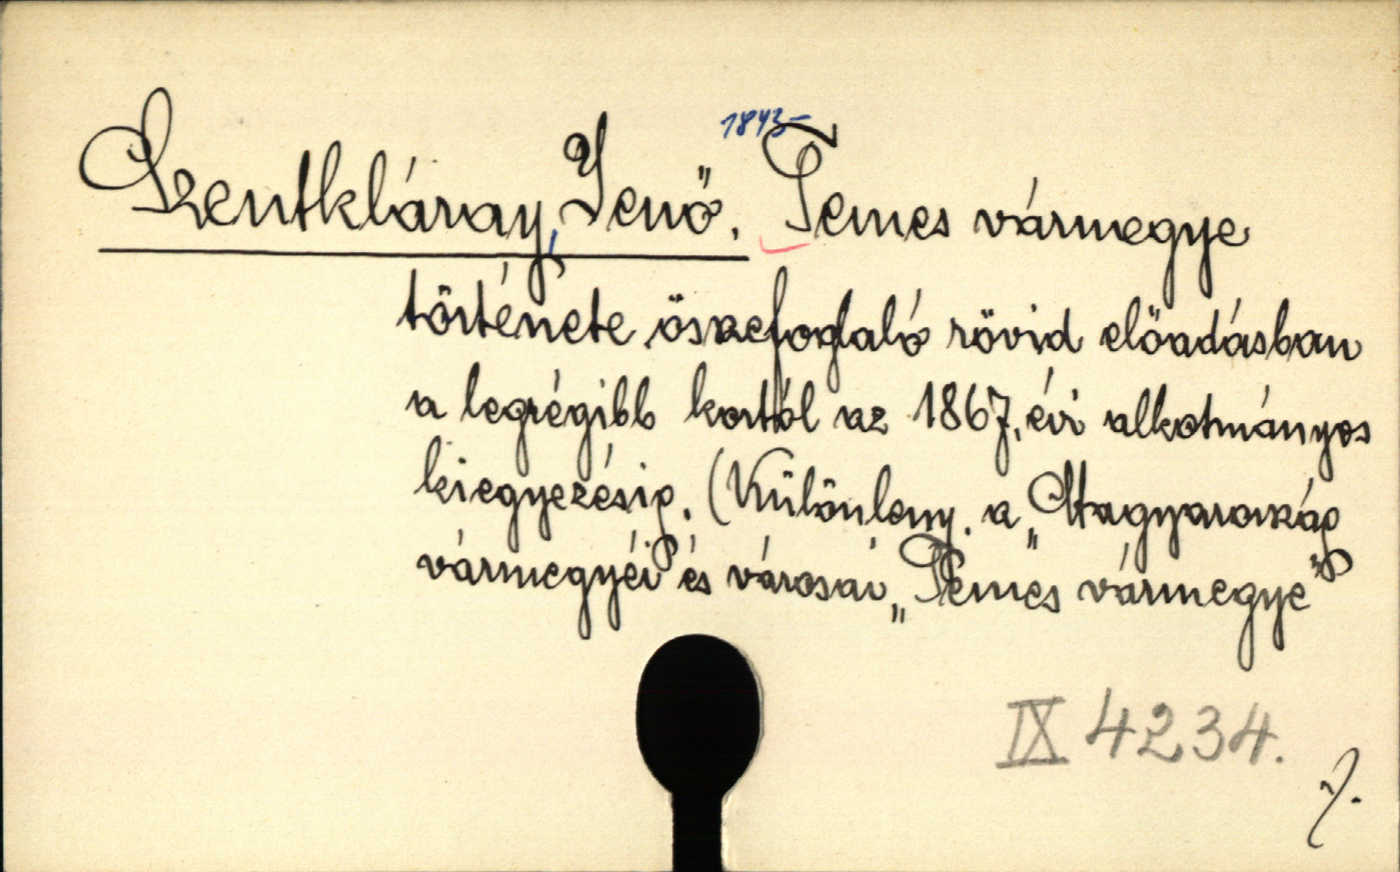 1843-
Szentkláray, Jenő. Temes vármegye
története öszefoglaló rövid előadásban
a legrégibb kortól az 1867. évi alkotmányos
kiegyezésig. (Különleny. a „Magyarország
vármegyéi és városai „Temes vármegye"
IX 4234.